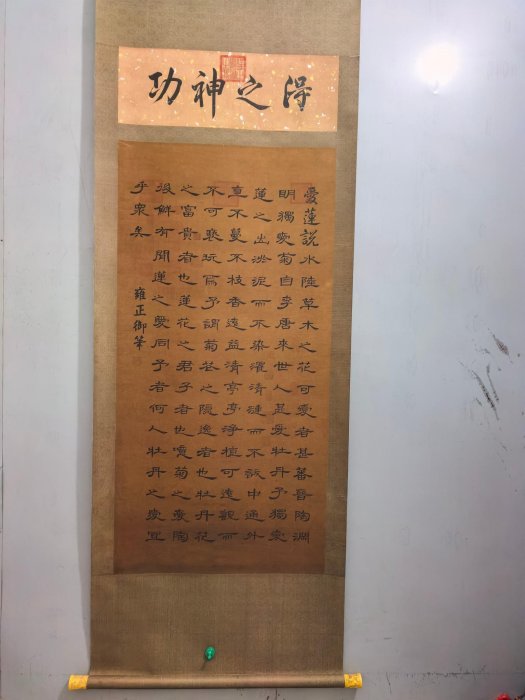 淂之神功
愛蓮說水陸草木之花可愛者甚蕃晉陶淵
明獨愛菊自李唐來世人甚愛牡丹予獨愛
蓮之出淤泥而不染濯清漣而不妖中通外
直不蔓不枝香遠益清亭亭淨植可遠觀而
不可褻玩焉予謂菊花之隱逸者也牡丹花
之富貴者也蓮花之君子者也噫菊之愛陶
後鮮有聞蓮之愛同予者何人牡丹之愛宜
乎衆矣
雍正御筆